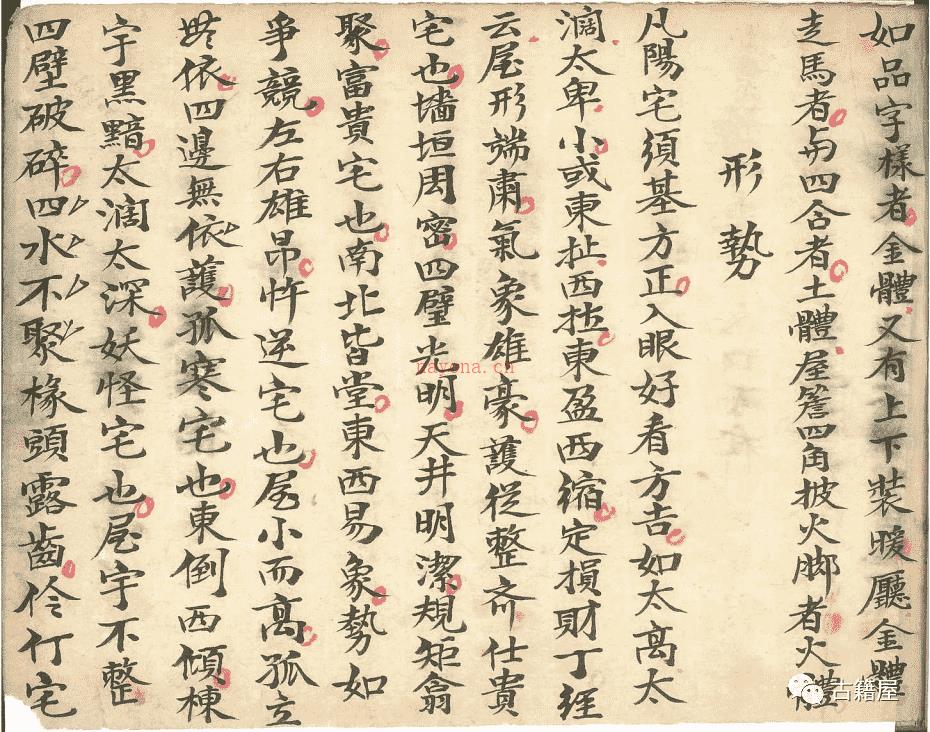 如品字樣者金體又有上下裝暖廳金體
走馬者与四合者土體屋簷四角披火脚者火體
形勢
凡陽宅須基方正入眼好看方吉如太高太
濶太卑小或東扯西拉東盈西缩定損財丁經
云屋形端肅氣象雄豪護從整齊仕貴
宅也墻垣周密四壁光明天井明潔規矩翕
聚富貴宅也南北皆堂東西易象勢如
爭競左右雄昂忤逆宅也屋小而高孤立
無依四邊無依護孤寒宅也東倒西傾棟
宇黑黯太濶太深妖怪宅也屋宇不整
四壁破碎四水不聚椽頭露齒伶仃宅
nayona.cn
古籍屋